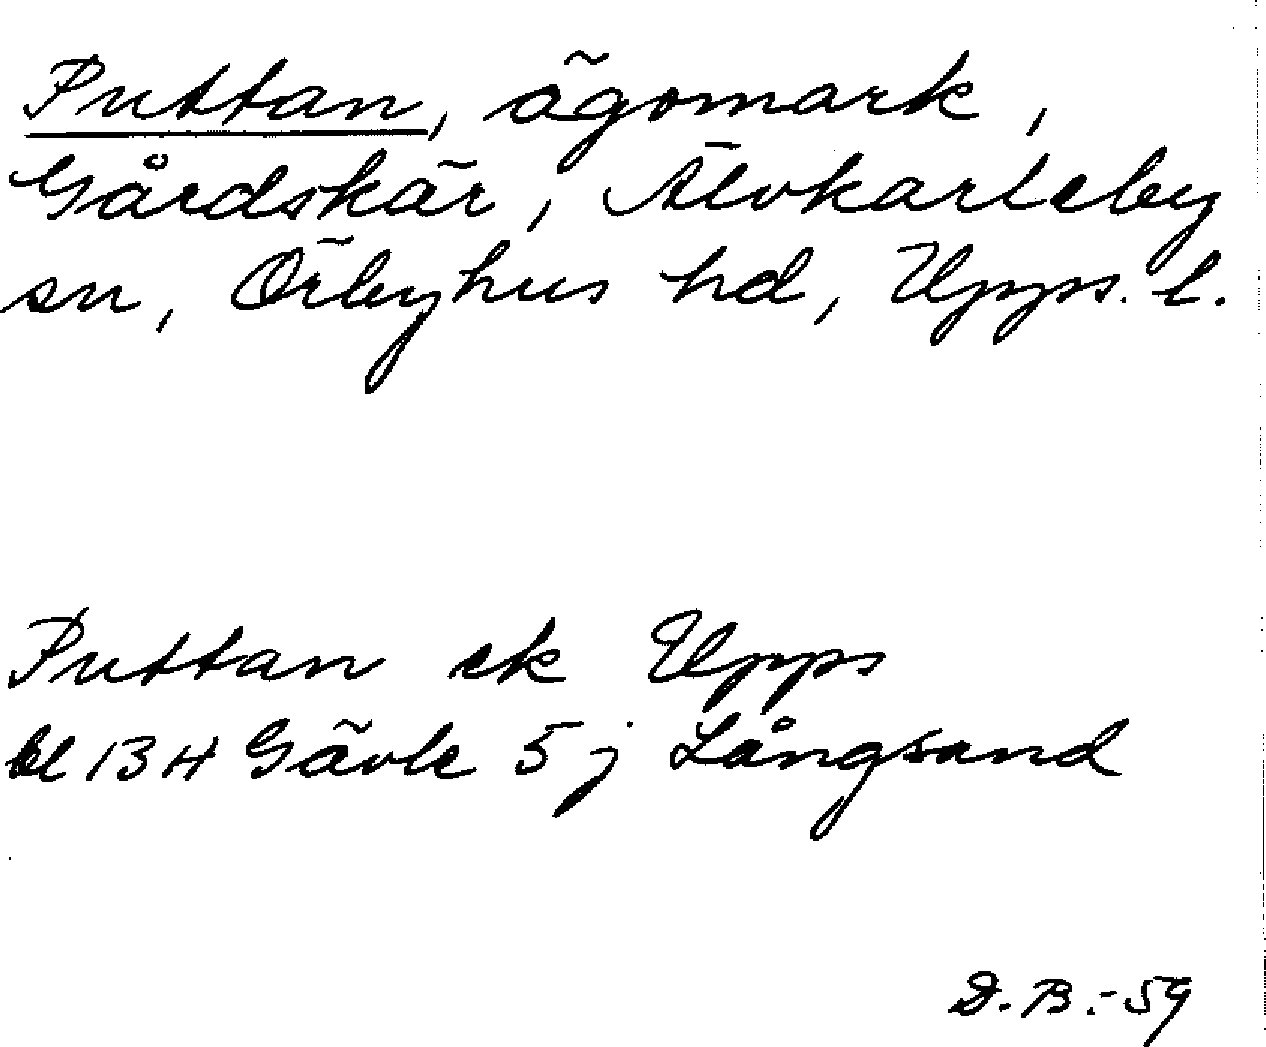 Puttan, ägomark,
Gårdskär, Älvkarleby
sn, Örbyhus hd, Upps. l.
Puttan ek Upps
bl 13 H Gävle 5 j Långsand
D. B. -59